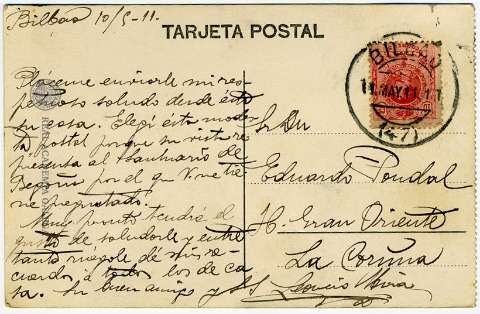 Bilbao 10/5-11.
TARJETA POSTAL
BILBAO
11 MAY.11
(47)
Pláceme enviarle mi res-
petuoso saludo desde esta
su casa. Elegí esta modes-
ta postal porque su vista re-
presenta el santuario de
Begoña por el que V. me
ne preguntado.
Muy pronto tendré el
gusto de saludarle y entre
tanto ruégole dé mis re-
cuerdos á todos los de ca-
sa. Su buen amigo y S. S.
Sr Dn
Eduardo Pondal
H. Gran Oriente
La Coruña